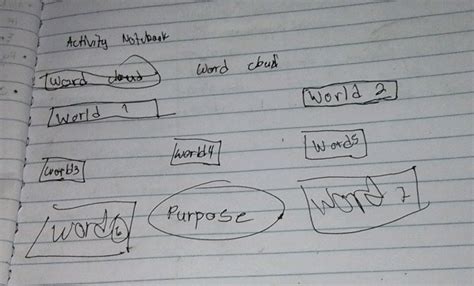 Activity Notebook
Word cloud word cloud
World 1 World 2
world3 world4 Word5
word6 Purpose word 7